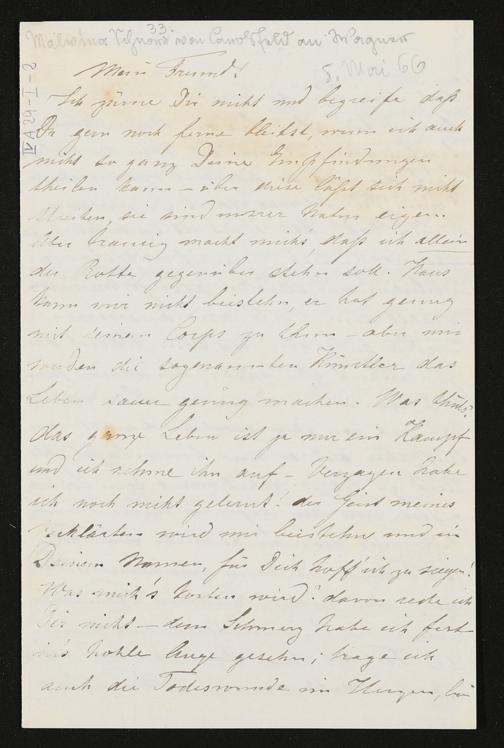 33
Malwina Schnorr von Carolsfeld an Wagner
5. Mai 66
IV A 29-I-8
Mein Freund!
Ich zürne Dir nicht und begreife daß
Du gern noch ferne bleibst, wenn ich auch
nicht so ganz Deine Empfindungen
theilen kann – über diese läßt sich nicht
streiten, sie sind unsrer Natur eigen.
Aber traurig macht mich's, daß ich allein
der Rotte gegenüber stehn soll. Hans
kann mir nicht beistehn, er hat genug
mit seinem Corps zu thun – aber mir
werden die sogenannten Künstler das
Leben sauer genug machen. Was thuts?
das ganze Leben ist ja nur ein Kampf
und ich nehme ihn auf – Verzagen habe
ich noch nicht gelernt! der Geist meines
Verklärten wird mir beistehn und in
Deinem Namen, für Dich hoff' ich zu siegen!
Was mich's kosten wird! davon rede ich
Dir nicht – dem Schmerz habe ich fest
in's hohle Auge gesehn; trage ich
auch die Todeswunde im Herzen,